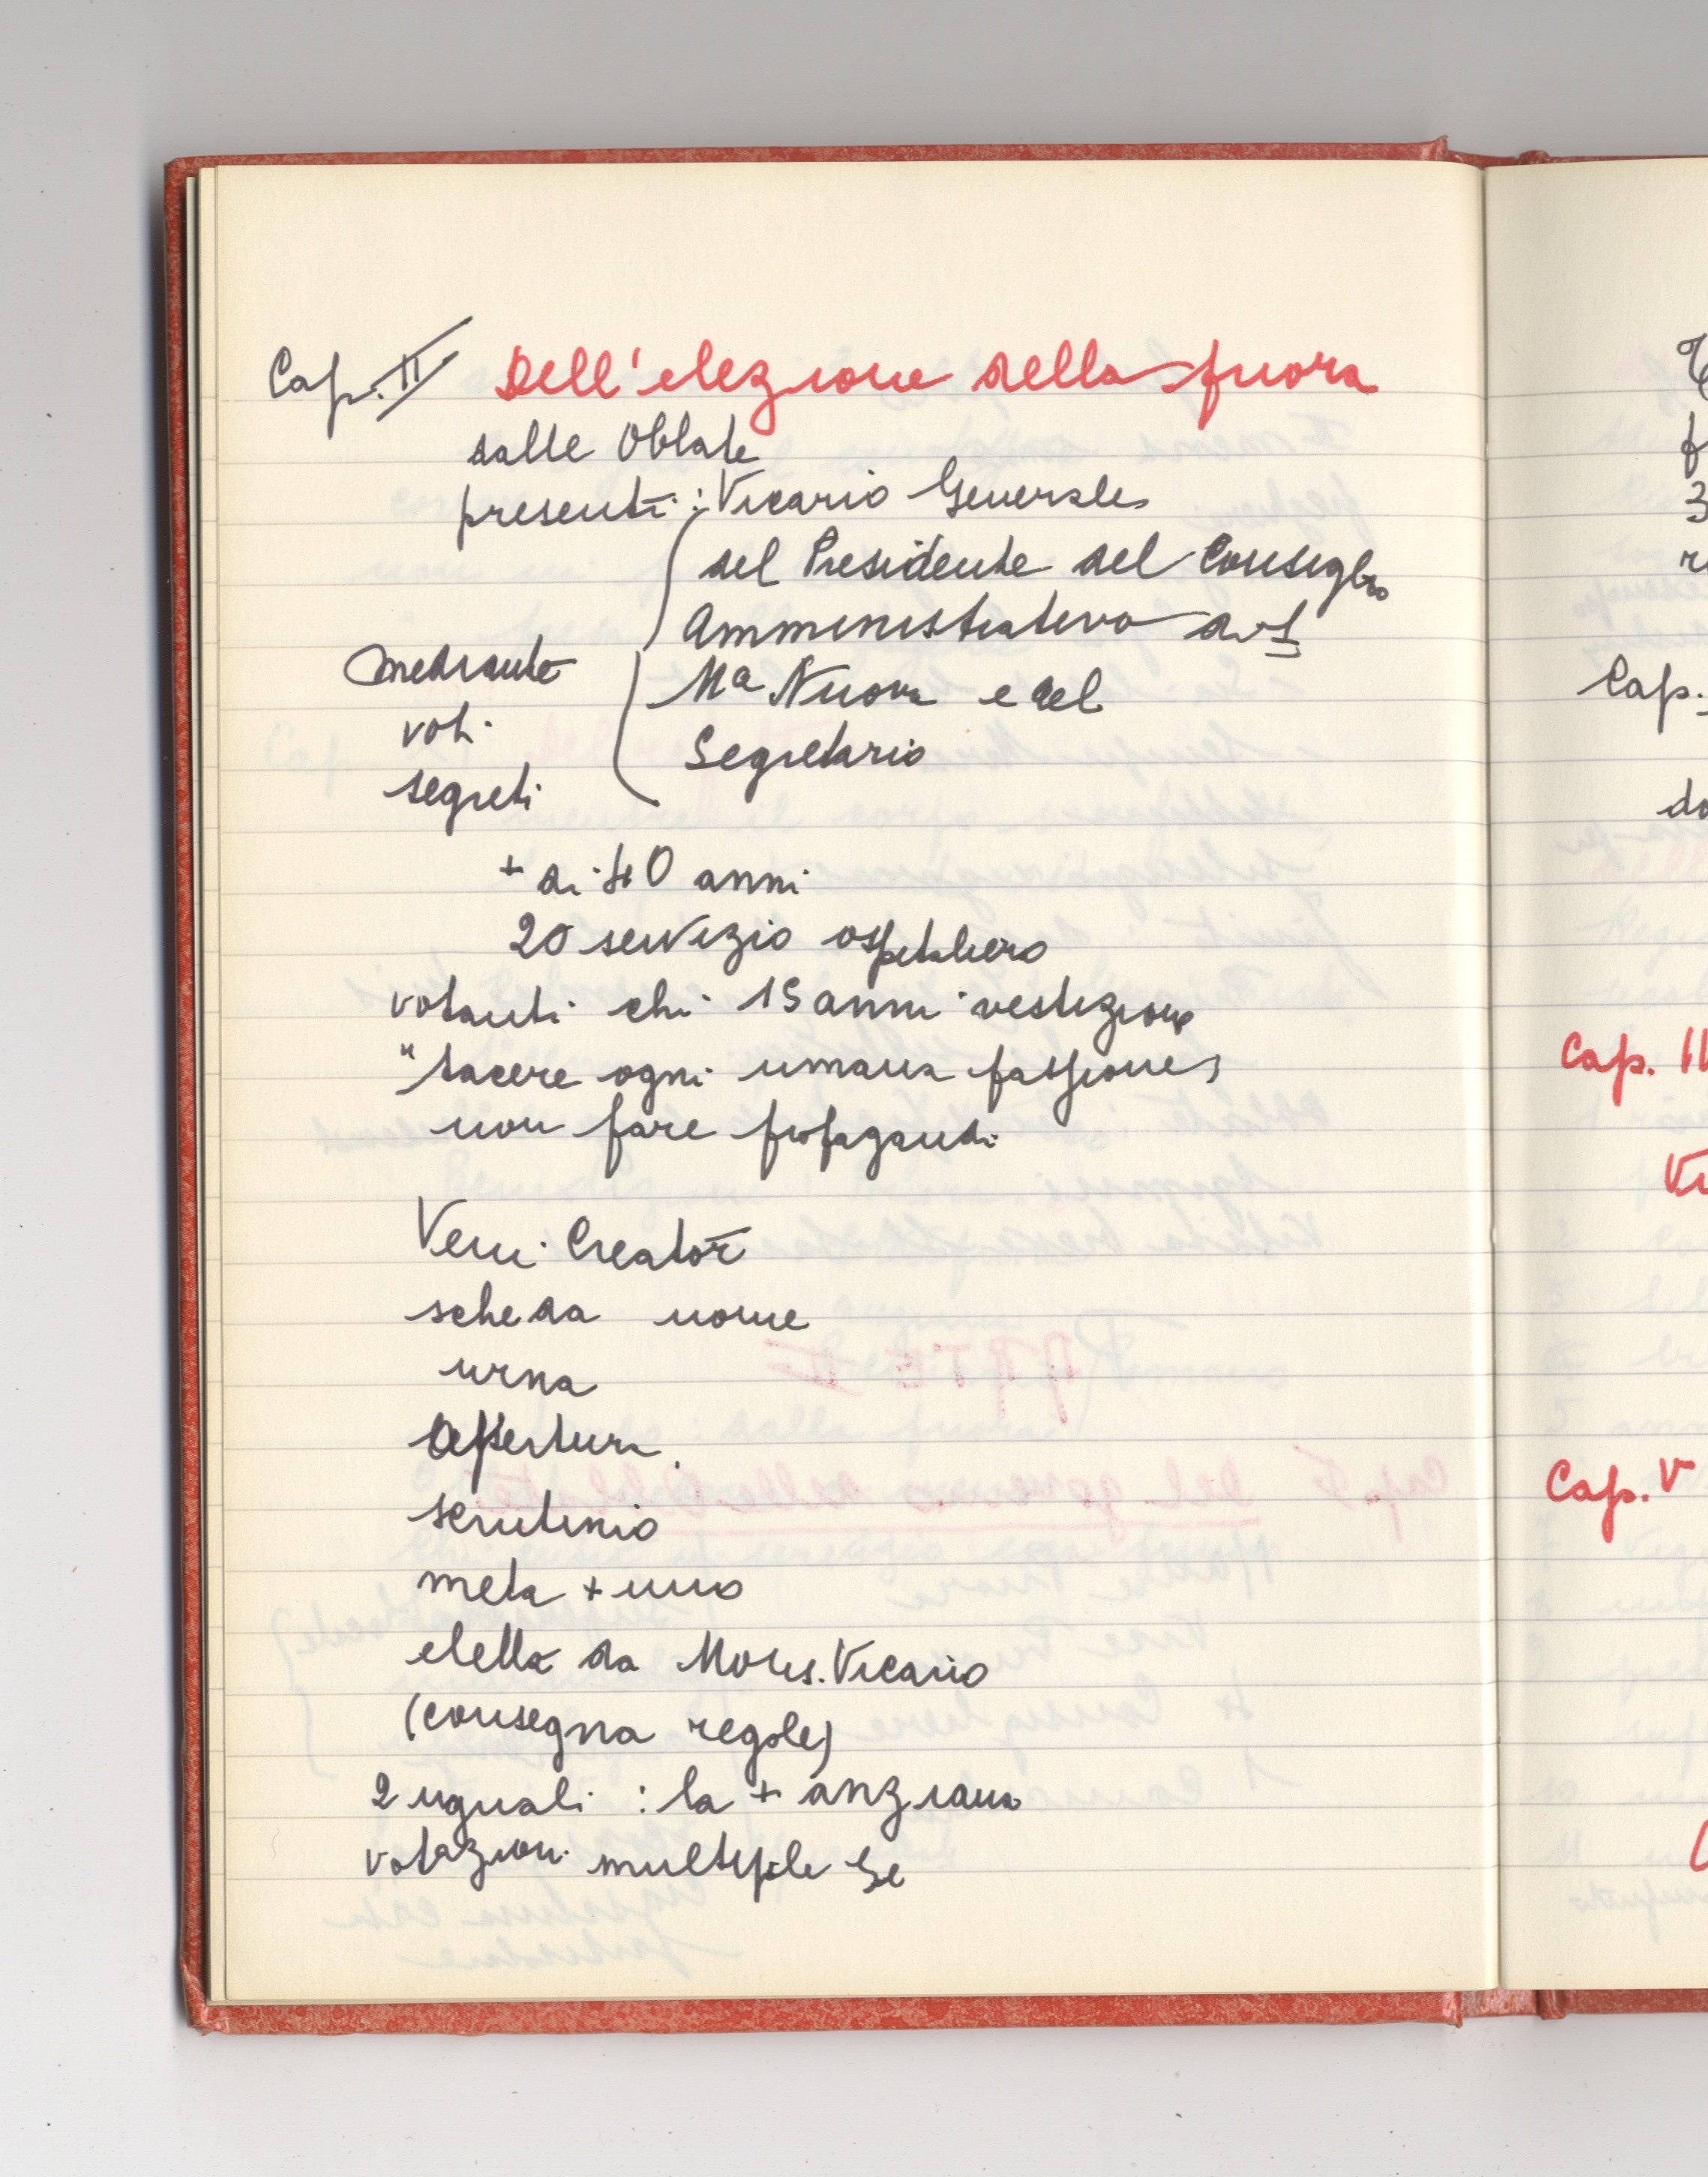 Cap. II Dell'elezione della priora
dalle Oblate
presenti: Vicario Generale
del Presidente del Consiglio
Amministrativo di S
Mª Nuova e del
Segretario
mediante
voti
segreti
+ di 40 anni
20 servizio ospitaliero
votanti chi 15 anni vestizione
"tacere ogni umana passione"
non fare propaganda
Veni Creator
scheda nome
urna
Apertura
scrutinio
metà + uno
eletta da Mons. Vicario
(consegna regole)
2 uguali : la + anziana
votazioni multiple se
Cap.
do
Cap. II
Vi
Cap. V